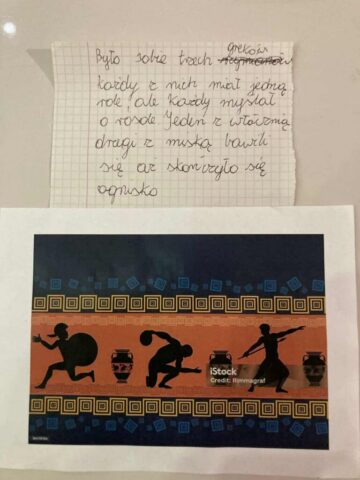 Było sobie trzech greków
każdy z nich miał jedną
role ale każdy myslał
o rosole Jeden z włócznią
drugi z miską bawili
się aż skończyło się
ognisko
iStock
Credit: Rimmagraf